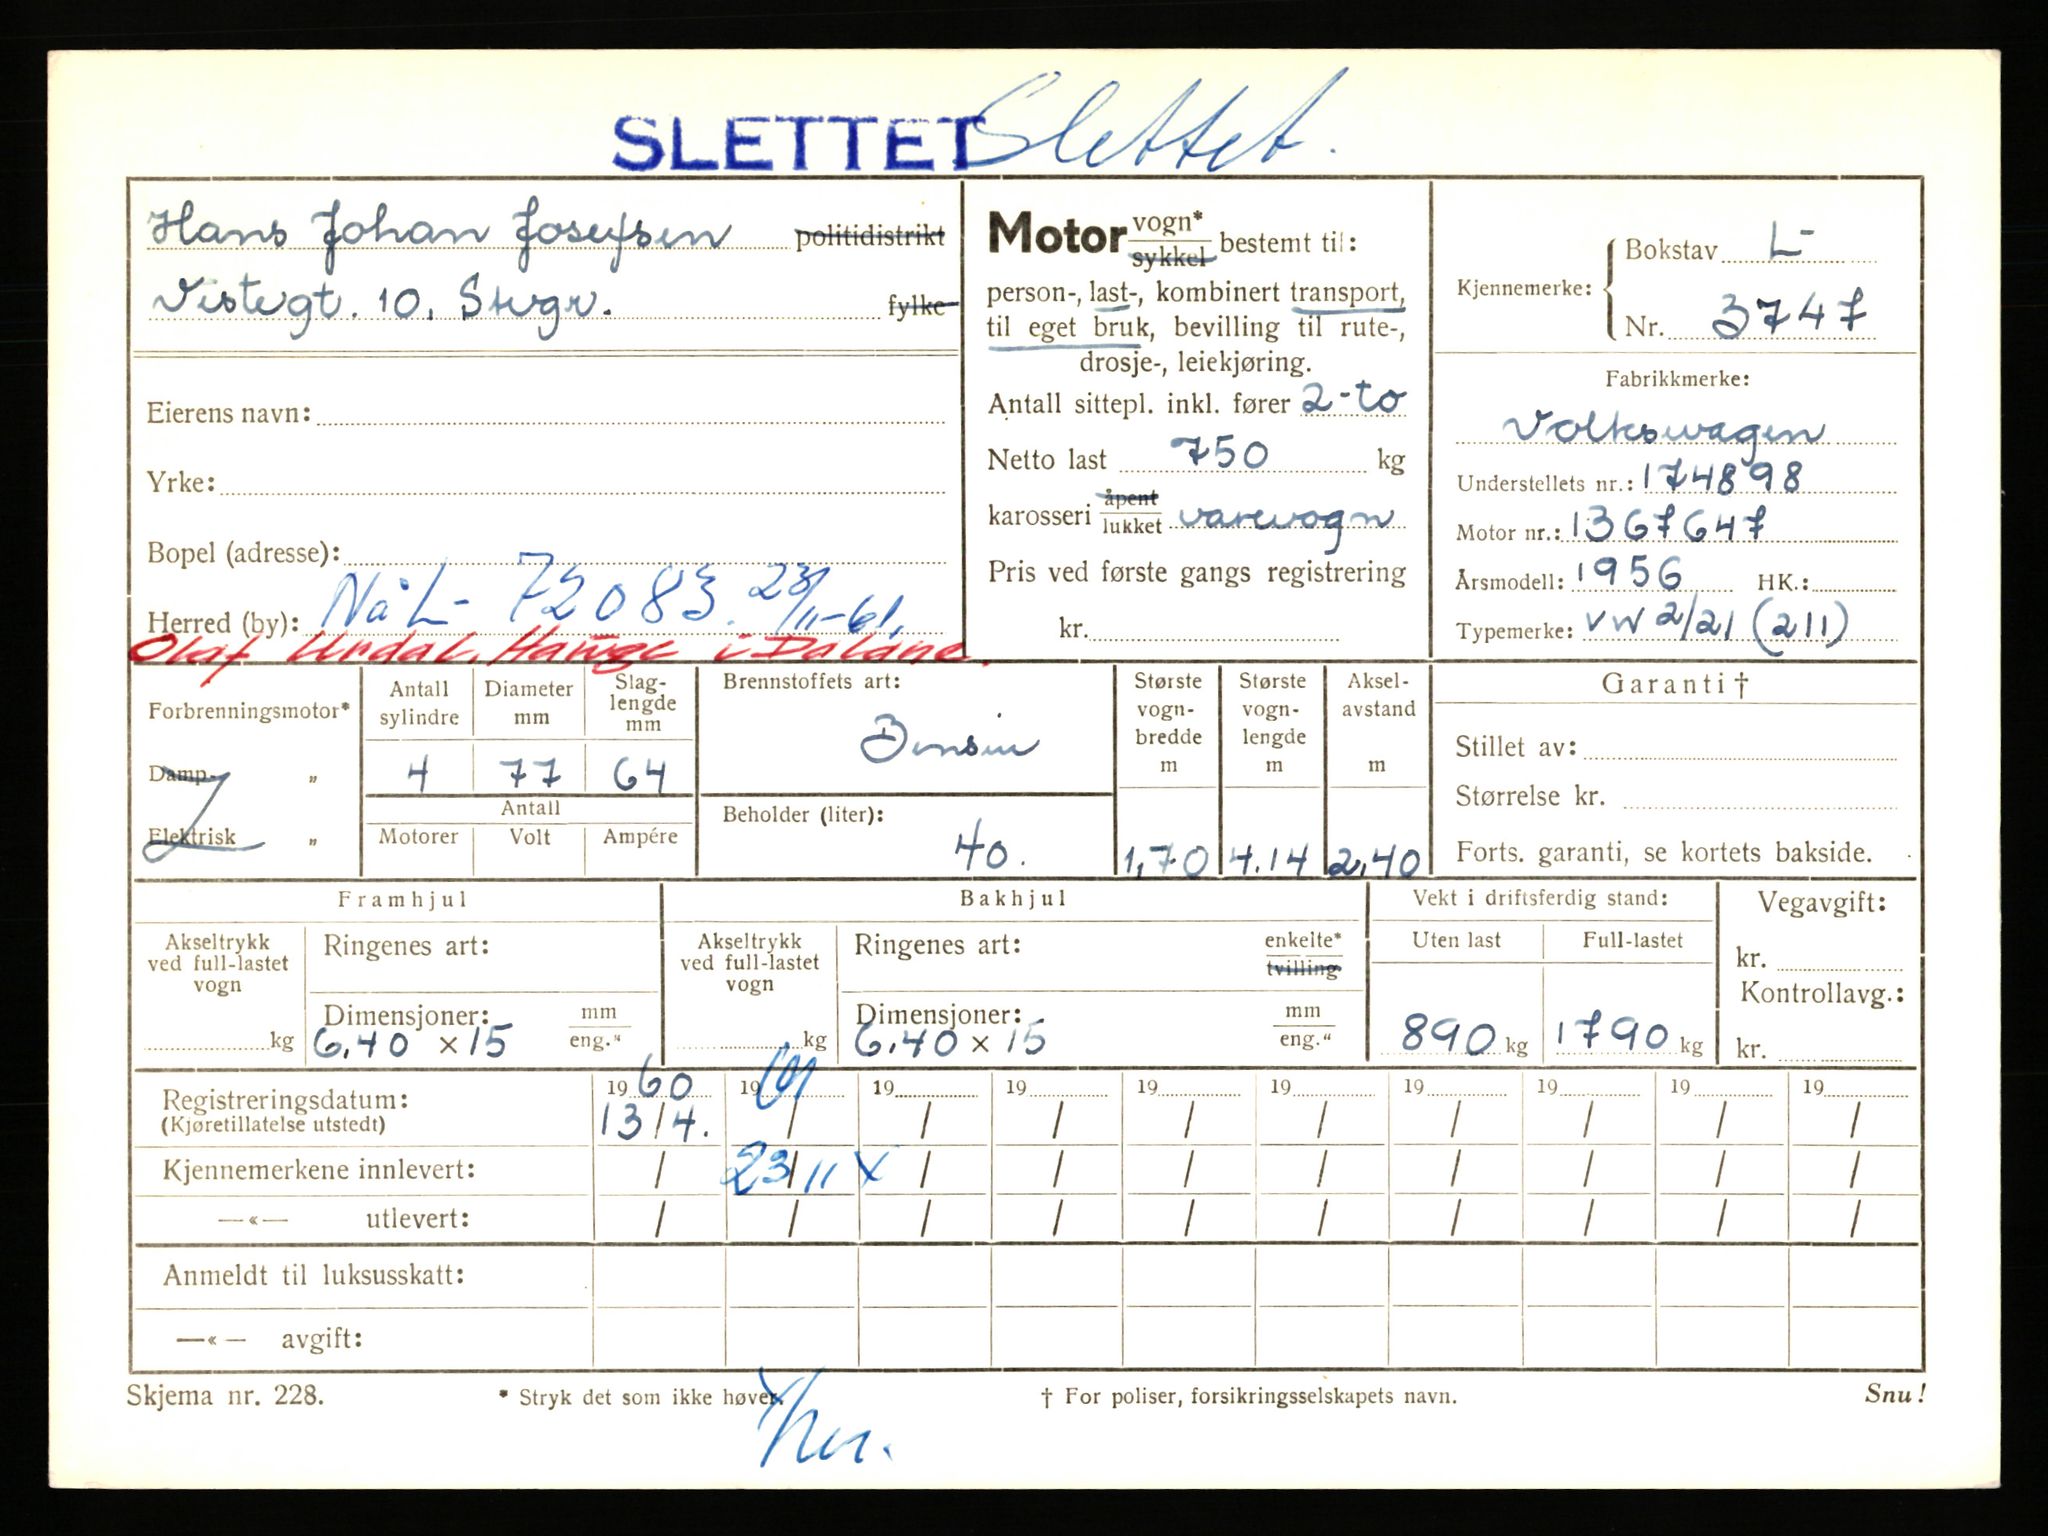 SLETTET Slettet.
Hans Johan Josefsen politidistrikt
Vistegt. 10, Stvgr. fylke
Eierens navn:
Yrke:
Bopel (adresse):
Herred (by): Nå L- 72083. 23/11-61.
Olaf Urdal, Hauge i Dalane.
Motor vogn* sykkel bestemt til:
person-, last-, kombinert transport,
til eget bruk, bevilling til rute-,
drosje-, leiekjøring.
Antall sittepl. inkl. fører 2-to
Netto last 750 kg
karosseri åpent lukket varevogn
Pris ved første gangs registrering
kr.
Kjennemerke: Bokstav L-
Nr. 3747
Fabrikkmerke:
Volkswagen
Understellets nr.: 174898
Motor nr.: 1367647
Årsmodell: 1956 HK.:
Typemerke: VW 2/21 (211)
Forbrenningsmotor*
Damp- „
Elektrisk „
Antall sylindre Diameter mm Slag-lengde mm
4 77 64
Antall
Motorer Volt Ampére
Brennstoffets art:
Bensin
Beholder (liter):
40.
Største vogn-bredde m Største vogn-lengde m Aksel-avstand m
1,70 4.14 2,40
Garanti †
Stillet av:
Størrelse kr.
Forts. garanti, se kortets bakside.
Framhjul
Akseltrykk ved full-lastet vogn
kg
Ringenes art:
Dimensjoner: mm
6.40 × 15 eng."
Bakhjul
Akseltrykk ved full-lastet vogn
kg
Ringenes art: enkelte* tvilling
Dimensjoner: mm
6.40 × 15 eng."
Vekt i driftsferdig stand:
Uten last Full-lastet
890 kg 1790 kg
Vegavgift:
kr.
Kontrollavg.:
kr.
Registreringsdatum: 1960 1961 19 19 19 19 19 19 19 19
(Kjøretillatelse utstedt) 13/4. / / / / / / / / /
Kjennemerkene innlevert: / 23/11 X / / / / / / / /
—«— utlevert: / / / / / / / / / /
Anmeldt til luksusskatt:
—«— avgift:
Skjema nr. 228. * Stryk det som ikke høver. † For poliser, forsikringsselskapets navn. Snu!